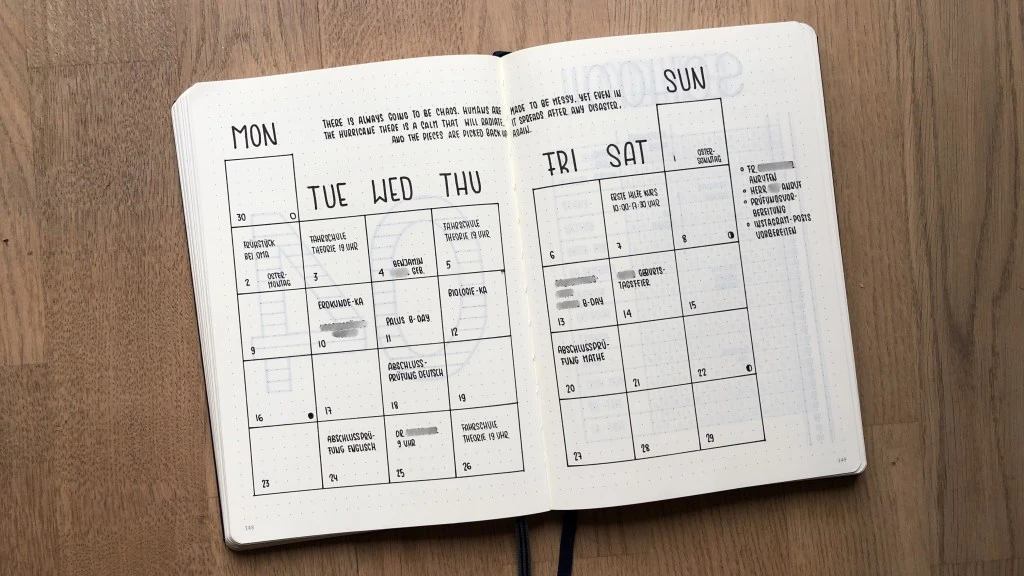 THERE IS ALWAYS GOING TO BE CHAOS. HUMANS ARE MADE TO BE MESSY. YET EVEN IN
THE HURRICANE THERE IS A CALM THAT WILL RADIATE. IT SPREADS AFTER ANY DISASTER.
AND THE PIECES ARE PICKED BACK UP AGAIN.
MON
TUE
WED
THU
FRI
SAT
SUN
30
1
OSTER-
SONNTAG
FRÜHSTÜCK
BEI OMA
2
OSTER-
MONTAG
FAHRSCHULE
THEORIE 19 UHR
3
BENJAMIN
GEB.
4
FAHRSCHULE
THEORIE 19 UHR
5
6
ERSTE HILFE KURS
10:00-17:30 UHR
7
8
9
ERDKUNDE-KA
10
PALUS B-DAY
11
BIOLOGIE-KA
12
B-DAY
13
GEBURTS-
TAGSFEIER
14
15
16
17
ABSCHLUSS-
PRÜFUNG DEUTSCH
18
19
ABSCHLUSSPRÜ-
FUNG MATHE
20
21
22
23
ABSCHLUSSPRÜ-
FUNG ENGLISCH
24
DR.
9 UHR
25
FAHRSCHULE
THEORIE 19 UHR
26
27
28
29
ANRUFEN
HERR ANRUF
PRÜFUNGSVOR-
BEREITUNG
INSTAGRAM-POSTS
VORBEREITEN
148
149